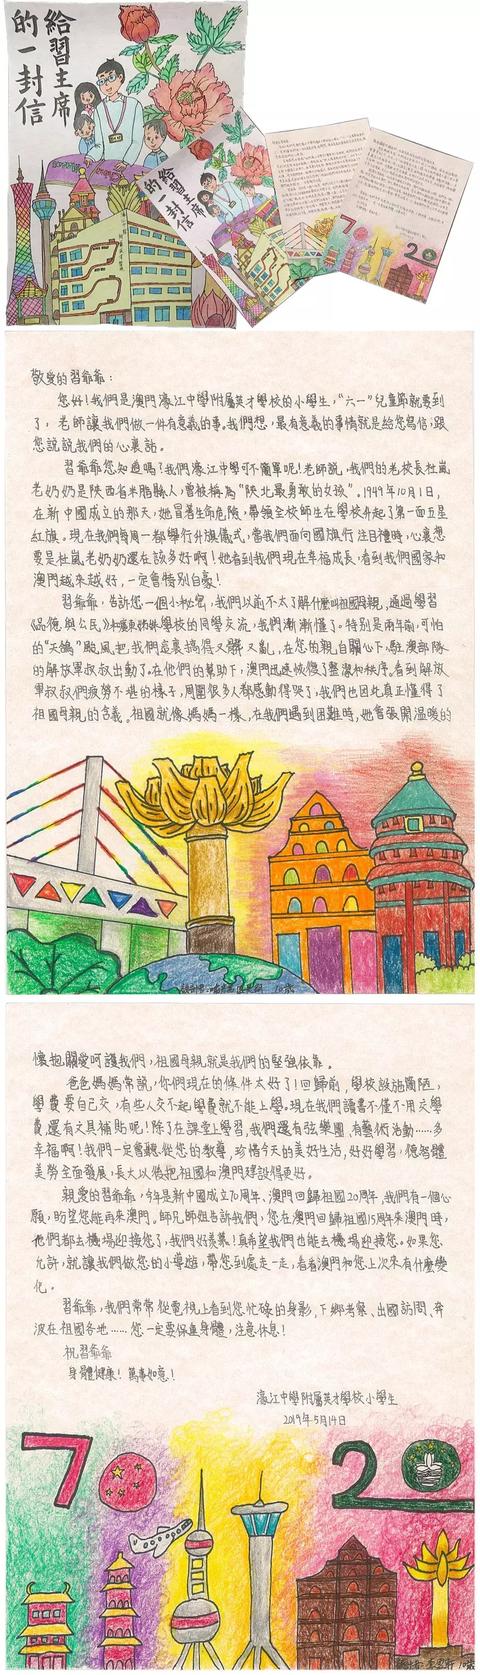 給習主席
的一封信
給習主席
的一封信
敬愛的習爺爺：
您好！我們是澳門濠江中學附屬英才學校的小學生，“六一”兒童節就要到
了，老師讓我們做一件有意義的事。我們想，最有意義的事情就是給您寫信，跟
您說說我們的心裏話。
習爺爺您知道嗎？我們濠江中學可不簡單呢！老師說，我們的老校長杜嵐
老奶奶是陝西省米脂縣人，曾被稱為“陝北最勇敢的女孩”。1949年10月1日，
在新中國成立的那天，她冒着生命危險，帶領全校師生在學校升起了第一面五星
紅旗。現在我們每周一都舉行升旗儀式，當我們面向國旗行注目禮時，心裏想
要是杜嵐老奶奶還在該多好啊！她看到我們現在幸福成長，看到我們國家和
澳門越來越好，一定會特別自豪！
習爺爺，告訴您一個小秘密，我們以前不太了解什麼叫祖國母親，通過學習
《品德與公民》和廣東姊妹學校的同學交流，我們漸漸懂了。特別是兩年前，可怕
的“天鴿”颱風把我們這裏搞得又髒又亂，在您的親自關心下，駐澳部隊
的解放軍叔叔出動了。在他們的幫助下，澳門迅速恢復了整潔和秩序。看到解放
軍叔叔們疲勞不堪的樣子，周圍很多人都感動得哭了，我們也因此真正懂得了
祖國母親的含義。祖國就像媽媽一樣，在我們遇到困難時，她會張開溫暖的
10歲
懷抱關愛呵護我們，祖國母親就是我們的堅強依靠。
爸爸媽媽常說，你們現在的條件太好了！回歸前，學校設施簡陋，
學費要自己交，有些人交不起學費就不能上學。現在我們讀書不僅不用交學
費還有文具補貼呢！除了在課堂上學習，我們還有弦樂團，有藝術活動……多
幸福啊！我們一定會聽從您的教導，珍惜今天的美好生活，好好學習，德智體
美勞全面發展，長大以後把祖國和澳門建設得更好。
親愛的習爺爺，今年是新中國成立70周年、澳門回歸祖國20周年，我們有一個心
願，盼望您能再來澳門。師兄師姐告訴我們，您在澳門回歸祖國15周年來澳門時，
他們都去機場迎接您了，我們好羨慕！真希望我們也能去機場迎接您。如果您
允許，就讓我們做您的小導遊，帶您到處走一走，看看澳門和您上次來有什麼變
化。
習爺爺，我們常常從電視上看到您忙碌的身影，下鄉考察、出國訪問、奔
波在祖國各地……您一定要保重身體，注意休息！
祝習爺爺
身體健康！萬事如意！
濠江中學附屬英才學校小學生
2019年5月14日
70
20